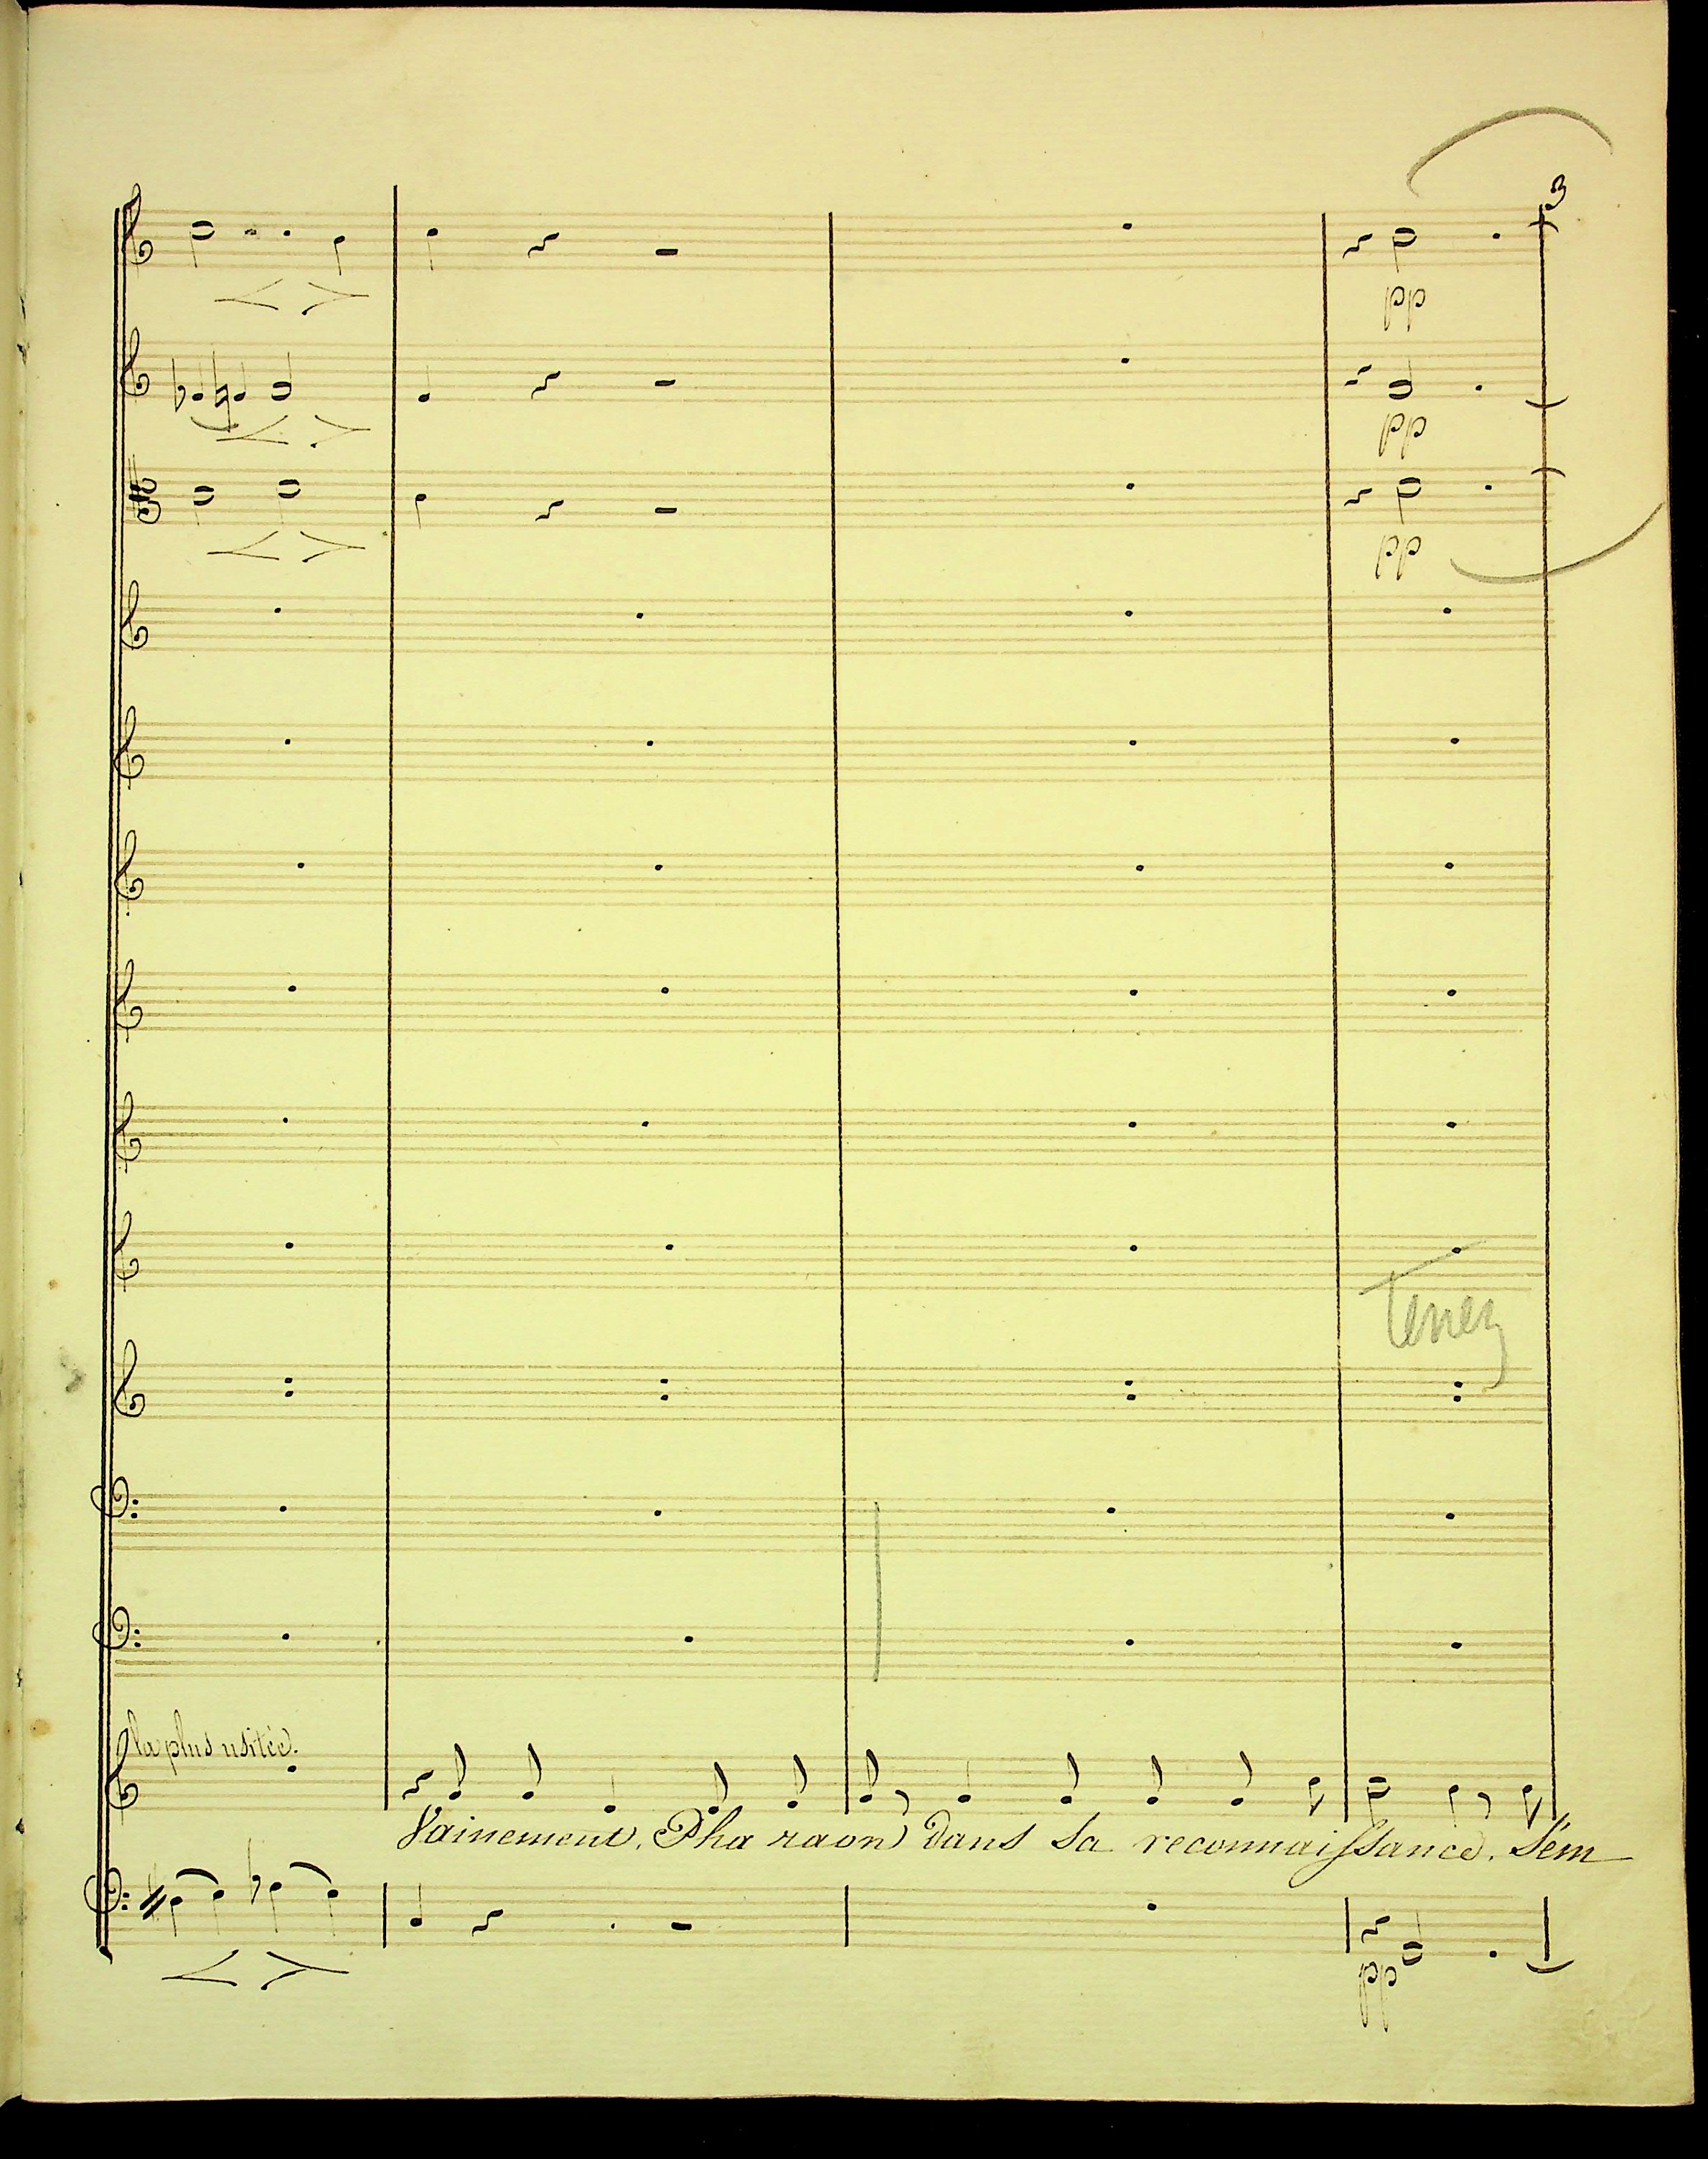 3
pp
pp
pp
Tenez
la plus usitée.
Vainement, Pha raon dans sa reconnaissance. S'em
pp